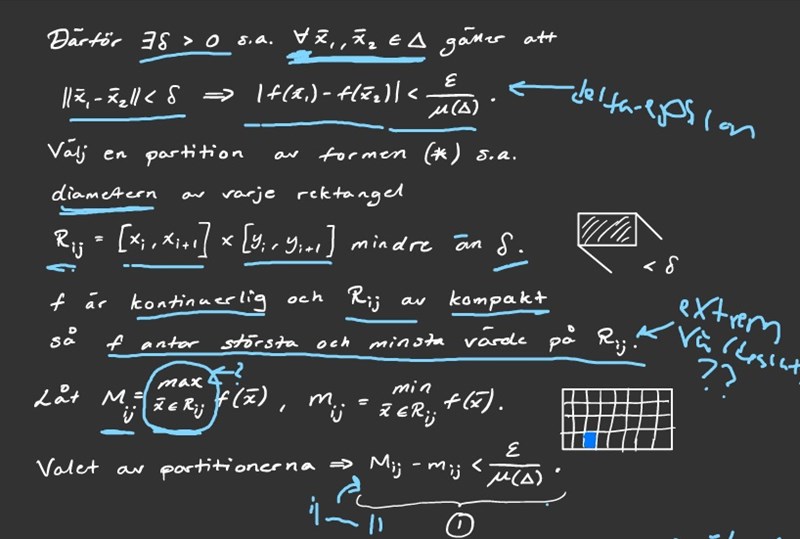 Därför ∃δ > 0 s.a. ∀ x̄₁, x̄₂ ∈ Δ gäller att
‖x̄₁ - x̄₂‖ < δ ⇒ |f(x̄₁) - f(x̄₂)| < ε/μ(Δ). ← delta-epsilon
Välj en partition av formen (*) s.a.
diametern av varje rektangel
R_ij = [x_i, x_{i+1}] × [y_i, y_{i+1}] mindre än δ.
< δ
f är kontinuerlig och R_ij av kompakt
så f antar största och minsta värde på R_ij. ← extrem
??
Låt M_ij = max_{x̄ ∈ R_ij} f(x̄), m_ij = min_{x̄ ∈ R_ij} f(x̄). ← ?
Valet av partitionerna ⇒ M_ij - m_ij < ε/μ(Δ).
①